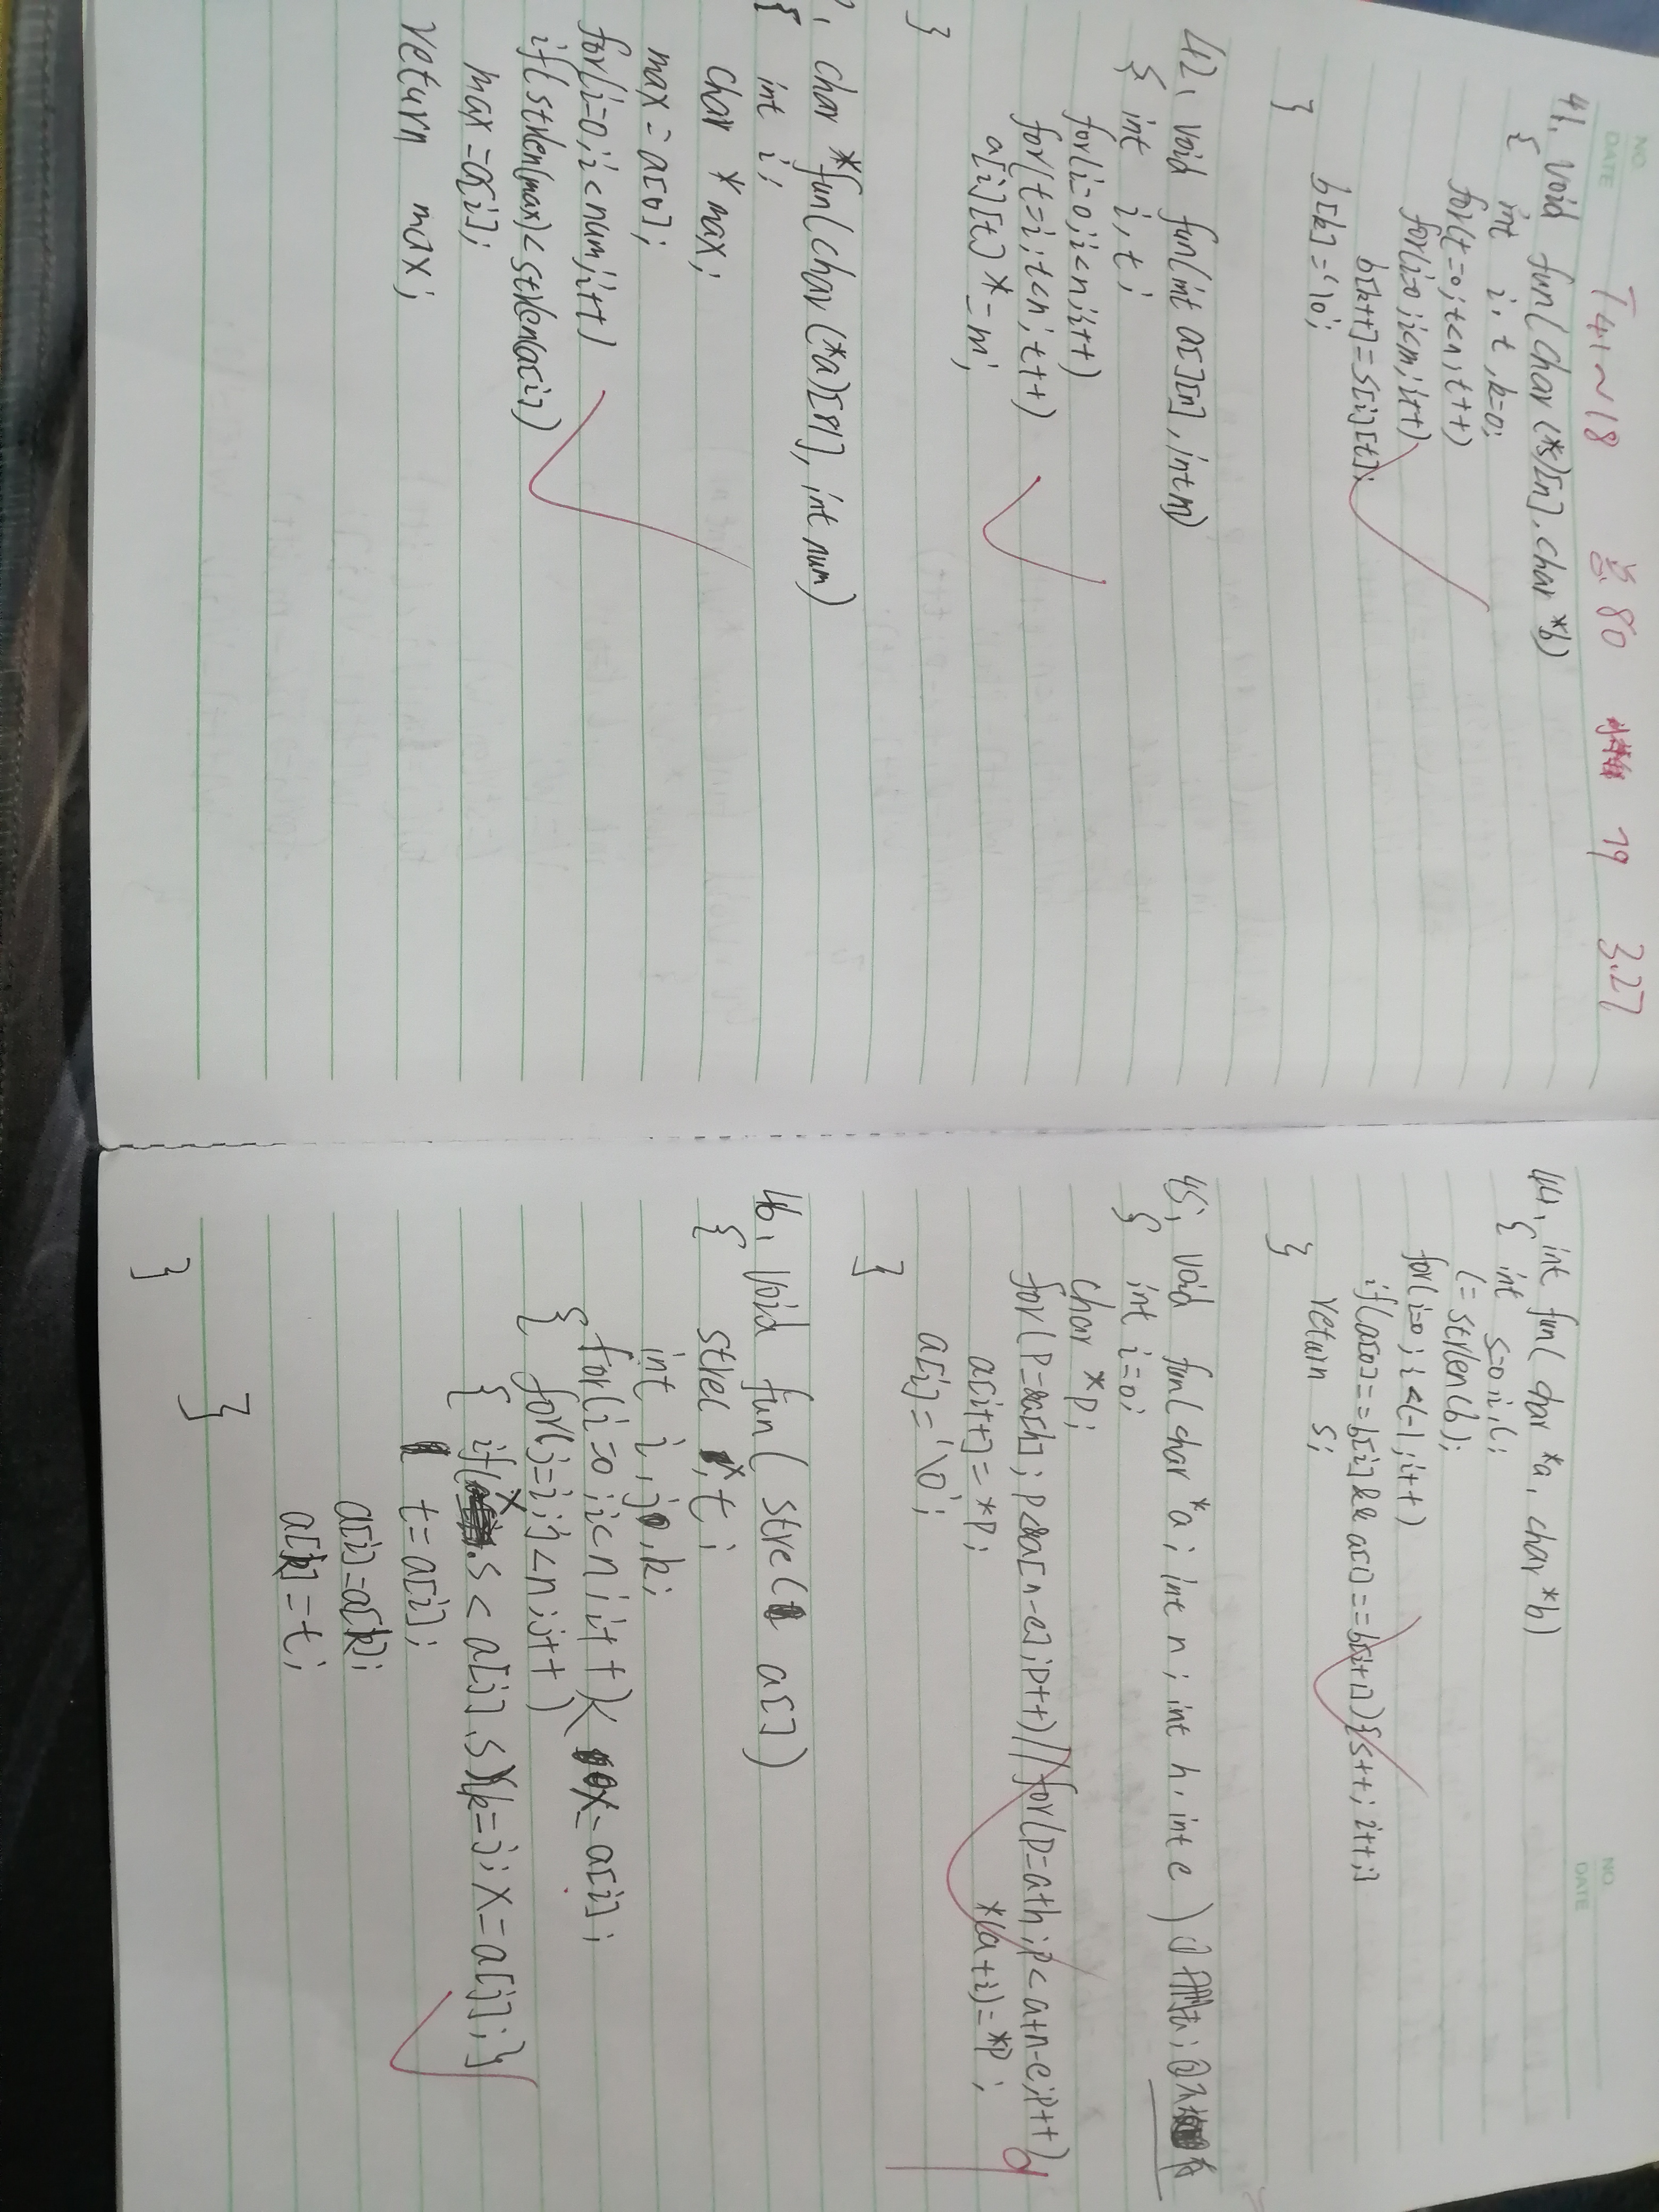 NO.
DATE
T41~18 80 79 3.27
41. void fun(char (*s)[n], char *b)
{ int i, t, k=0;
for(t=0; t<n; t++)
for(i=0; i<m; i++)
b[k++]=s[i][t];
b[k]='\0';
}
42. void fun(int a[][n], int m)
{ int i, t;
for(i=0; i<n; i++)
for(t=i; t<n; t++)
a[i][t] *= m;
}
char *fun(char (*a)[81], int num)
{ int i;
char *max;
max = a[0];
for(i=0; i<num; i++)
if(strlen(max)<strlen(a[i])
max=a[i];
return max;
NO.
DATE
44. int fun( char *a, char *b)
{ int s=0, i, l;
l=strlen(b);
for(i=0; i<l-1; i++)
if(a[0]==b[i]&&a[1]==b[i+1]){s++; i++;}
return s;
}
45. void fun(char *a; int n; int h, int e)
{ int i=0;
char *p;
for(p=&a[h]; p<&a[n-e]; p++) // for(p=a+h; p<a+n-e; p++)
a[i++]=*p; *(a+i)=*p;
a[i]='\0';
}
46. void fun( strec a[])
{ strec x, t;
int i, j, k;
for(i=0; i<n; i++){ x=a[i];
{ for(j=i; j<n; j++)
{ if(x.s < a[j].s){k=j; x=a[j];}
t=a[i];
a[i]=a[k];
a[k]=t;
}
}